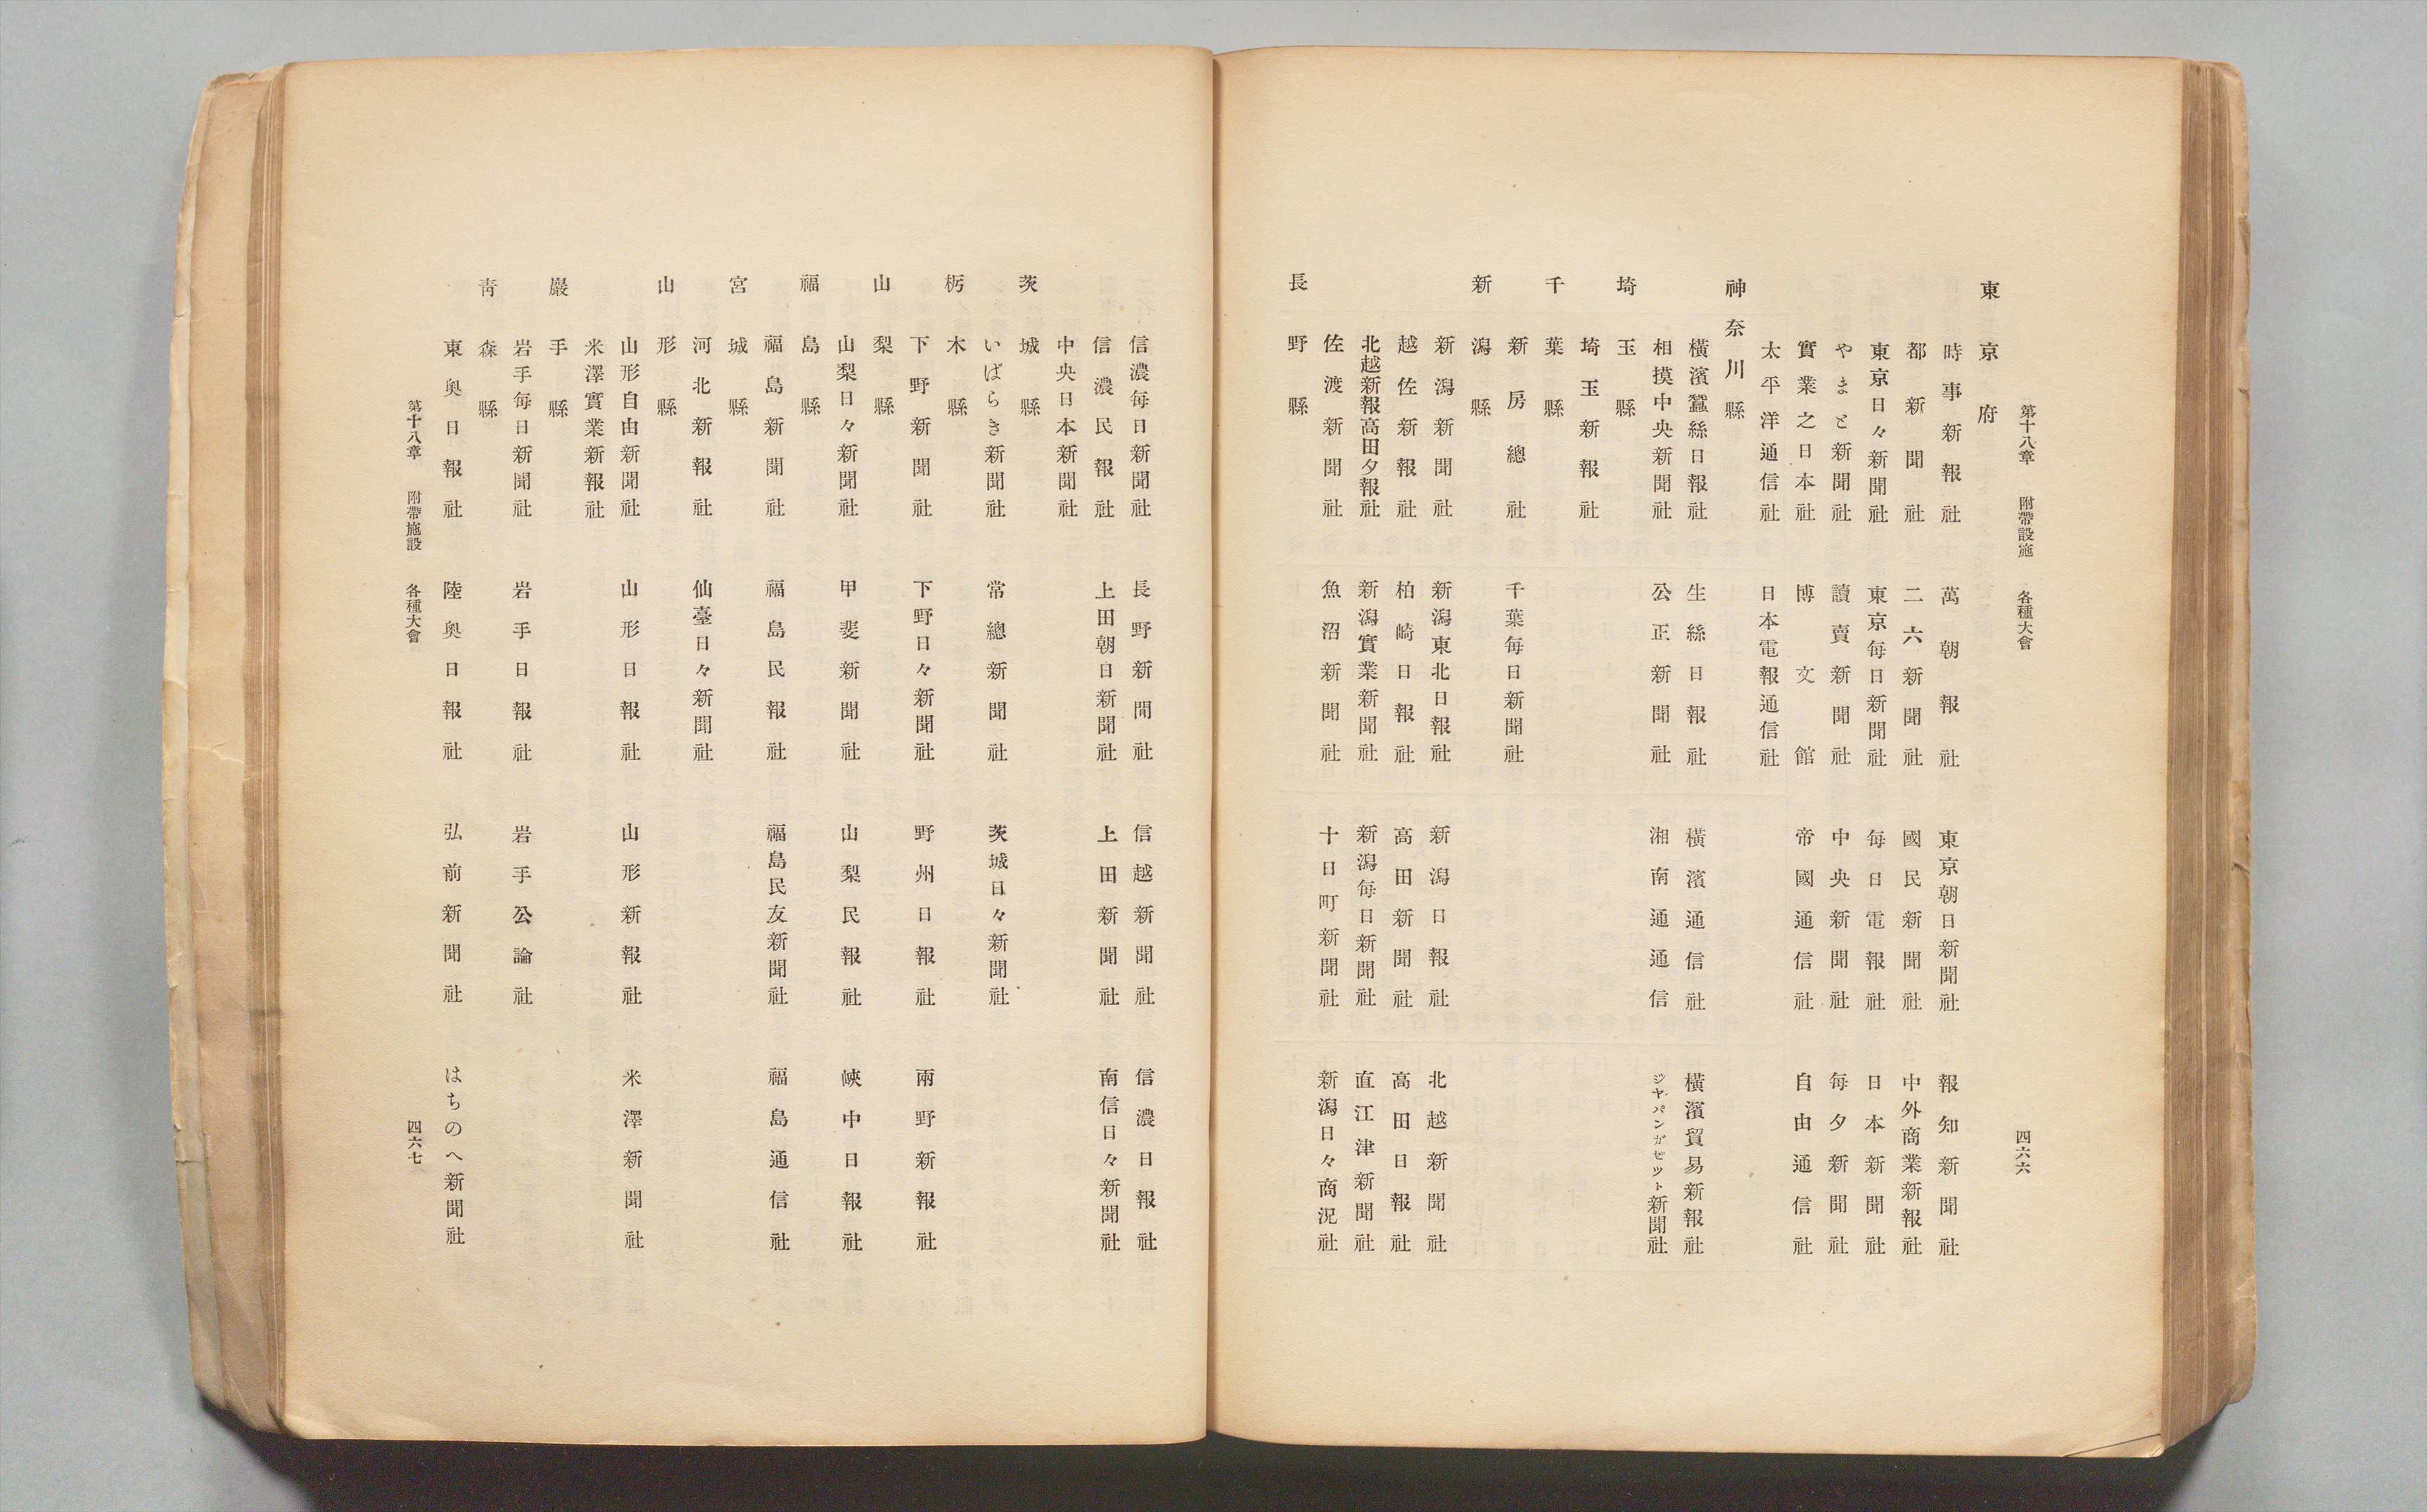 第十八章　附帶設施　各種大會　四六六
東京府
時事新報社　萬朝報社　東京朝日新聞社　報知新聞社
都新聞社　二六新聞社　國民新聞社　中外商業新報社
東京日々新聞社　東京每日新聞社　每日電報社　日本新聞社
やまと新聞社　讀賣新聞社　中央新聞社　每夕新聞社
實業之日本社　博文館　帝國通信社　自由通信社
太平洋通信社　日本電報通信社
神奈川縣
橫濱蠶絲日報社　生絲日報社　橫濱通信社　橫濱貿易新報社
相摸中央新聞社　公正新聞社　湘南通通信　ジヤパンガゼツト新聞社
埼玉縣
埼玉新報社
千葉縣
新房總社　千葉每日新聞社
新潟縣
新潟新聞社　新潟東北日報社　新潟日報社　北越新聞社
越佐新報社　柏崎日報社　高田新聞社　高田日報社
北越新報高田夕報社　新潟實業新聞社　新潟每日新聞社　直江津新聞社
佐渡新聞社　魚沼新聞社　十日町新聞社　新潟日々商況社
長野縣
信濃每日新聞社　長野新聞社　信越新聞社　信濃日報社
信濃民報社　上田朝日新聞社　上田新聞社　南信日々新聞社
中央日本新聞社
茨城縣
いばらき新聞社　常總新聞社　茨城日々新聞社
栃木縣
下野新聞社　下野日々新聞社　野州日報社　兩野新報社
山梨縣
山梨日々新聞社　甲斐新聞社　山梨民報社　峽中日報社
福島縣
福島新聞社　福島民報社　福島民友新聞社　福島通信社
宮城縣
河北新報社　仙臺日々新聞社
山形縣
山形自由新聞社　山形日報社　山形新報社　米澤新聞社
米澤實業新報社
巖手縣
岩手每日新聞社　岩手日報社　岩手公論社
靑森縣
東奧日報社　陸奧日報社　弘前新聞社　はちのへ新聞社
第十八章　附帶施設　各種大會　四六七